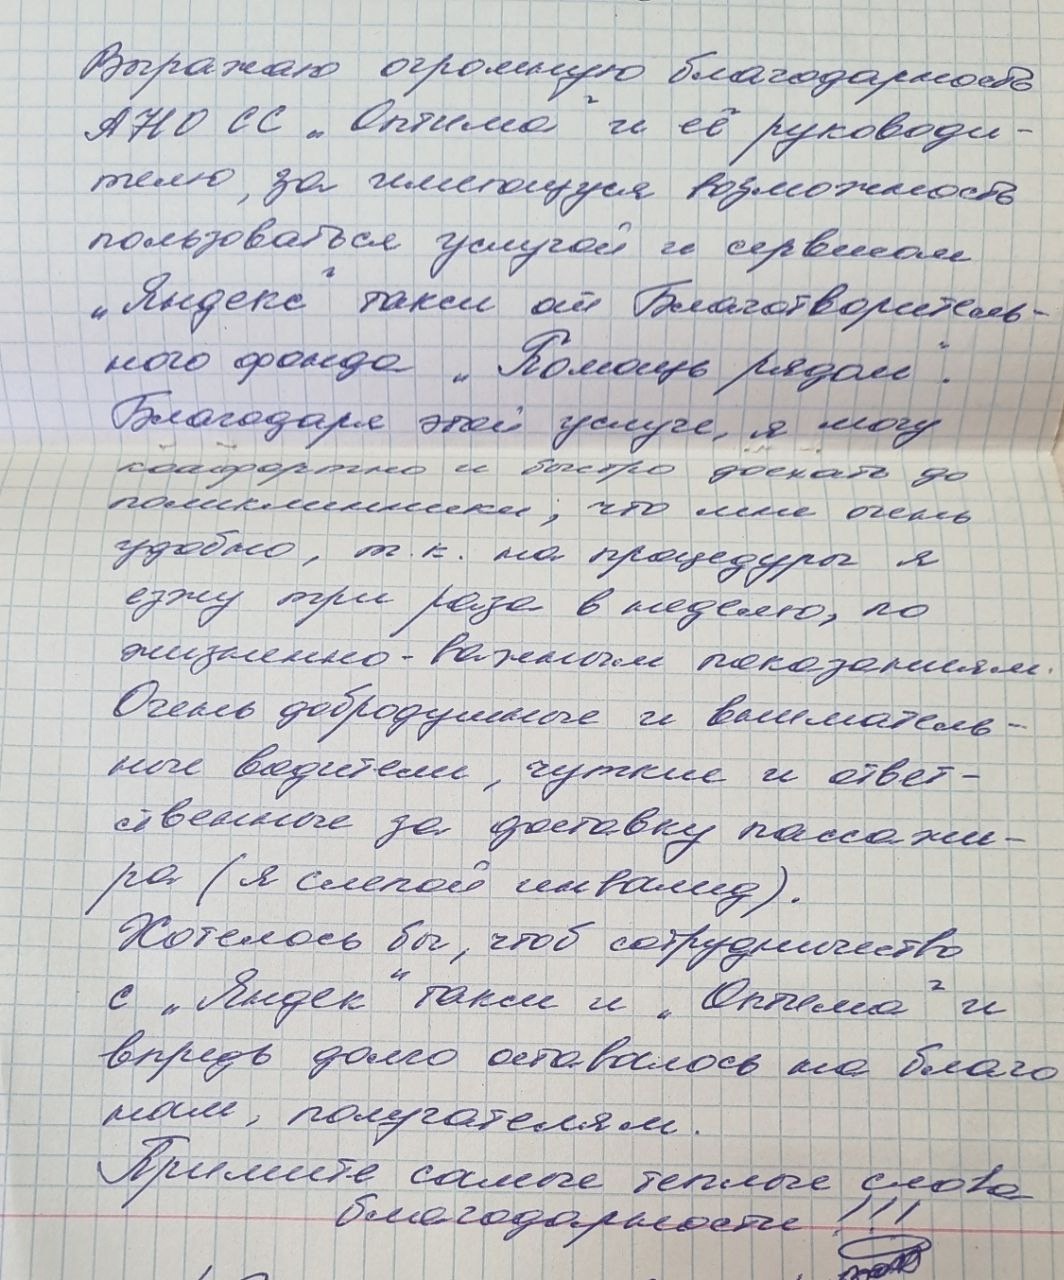 Выражаю огромную благодарность
АНО СС „Оптима" и её руководи-
телю, за имеющуюся возможность
пользоваться услугой и сервисом
„Яндекс" такси от Благотворитель-
ного фонда „Помощь рядом".
Благодаря этой услуге, я могу
комфортно и быстро доехать до
поликлинники, что мне очень
удобно, т.к. на процедуры я
езжу три раза в неделю, по
жизненно-важным показаниям.
Очень добродушные и вниматель-
ные водители, чуткие и ответ-
ственные за доставку пассажи-
ра (я слепой инвалид).
Хотелось бы, чтоб сотрудничество
с „Яндек" такси и „Оптима" и
впредь долго оставалось на благо
нам, получателям.
Примите самые теплые слова
благодарности!!!